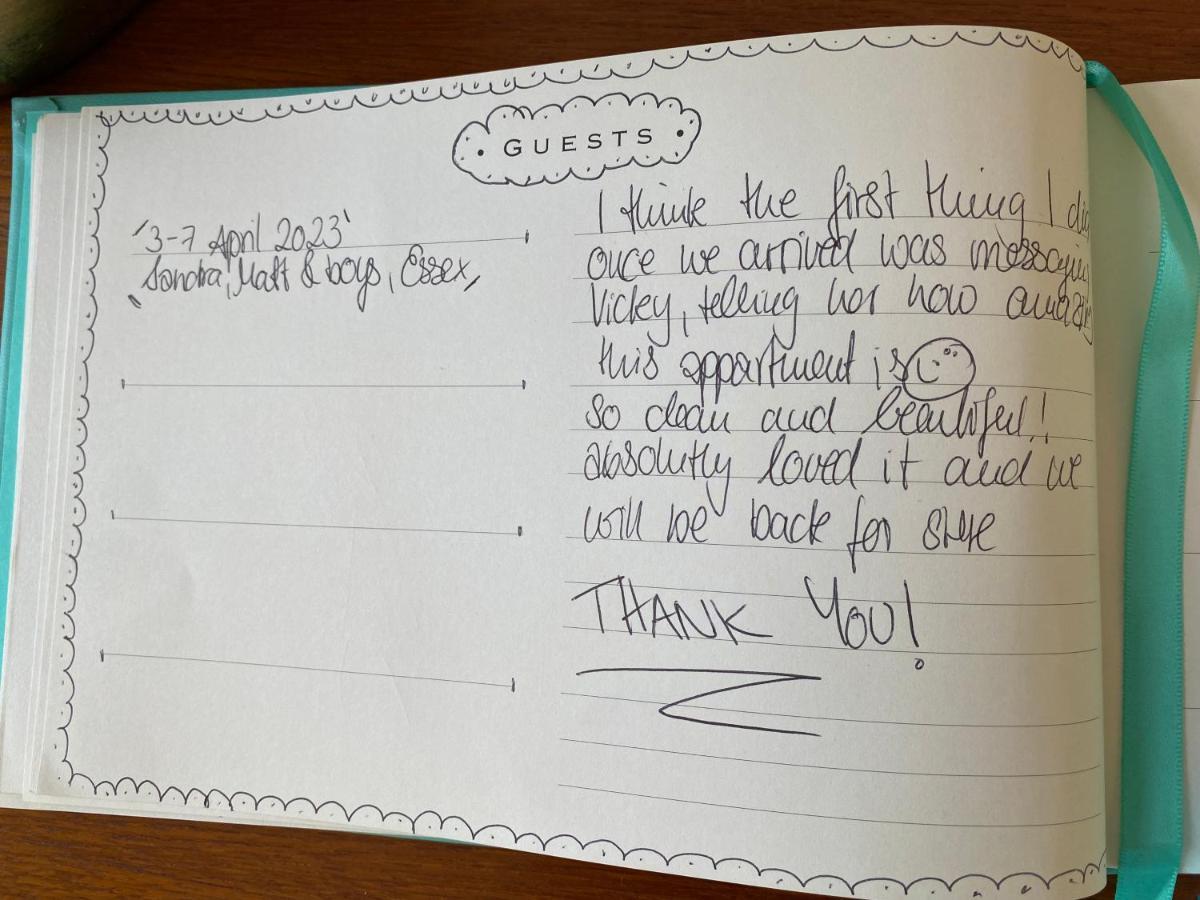 GUESTS
'3-7 April 2023'
Sandra, Matt & boys, Essex,
I think the first thing I did
once we arrived was messagin
Vicky, telling her how amazing
this appartment is
so clean and beautiful!!
absolutly loved it and we
will be back for sure
THANK YOU!